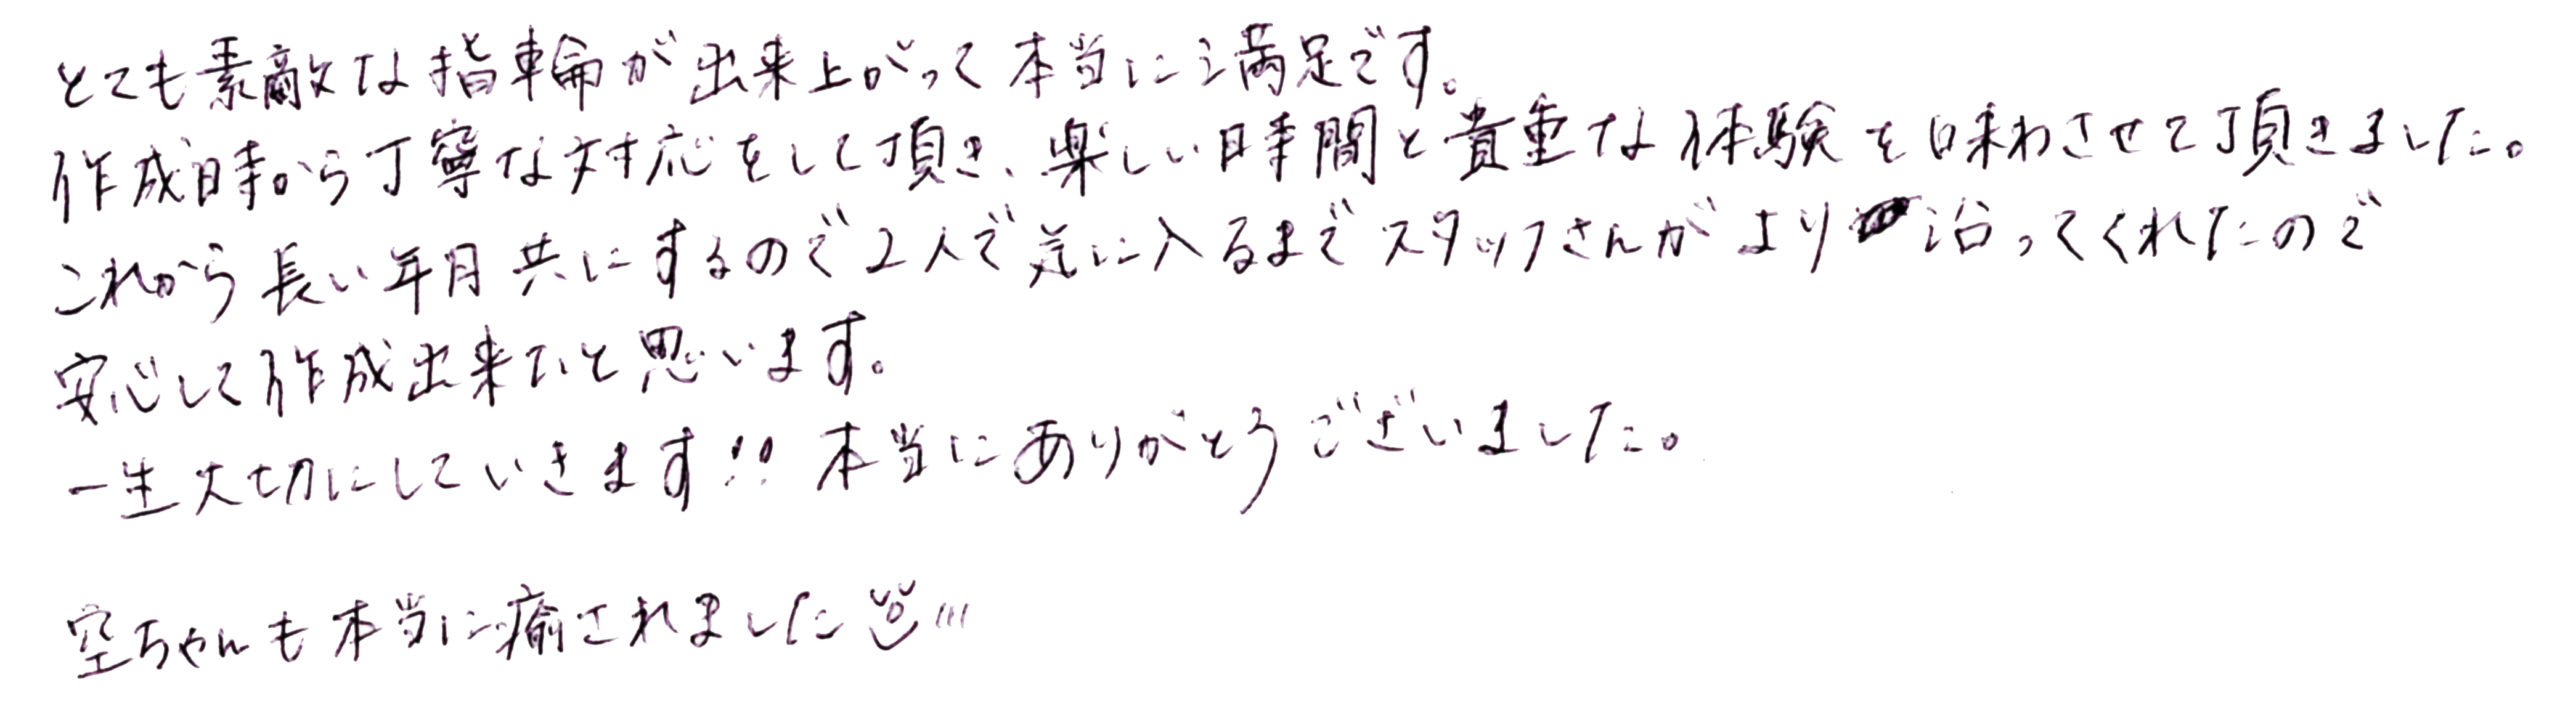 とても素敵な指輪が出来上がって本当に満足です。
作成時から丁寧な対応をして頂き、楽しい時間と貴重な体験を味わさせて頂きました。
これから長い年月共にするので2人で気に入るまでスタッフさんがより沿ってくれたので
安心して作成出来たと思います。
一生大切にしていきます!! 本当にありがとうございました。
空ちゃんも本当に癒されました